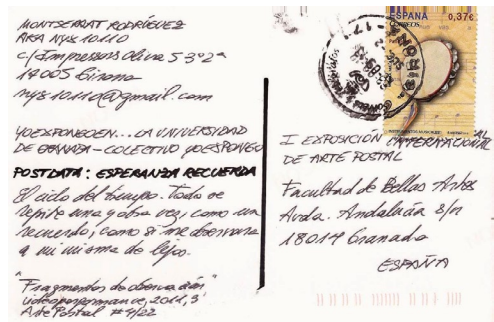 MONTSERRAT RODRÍGUEZ
AKA NYX 10110
c/Impressors Oliva 5 3º2ª
17005 Girona
nyx10110@gmail.com
YOEXPONGOEN... LA UNIVERSIDAD
DE GRANADA - COLECTIVO YOEXPONGO
POSTDATA: ESPERANZA RECUERDA
El ciclo del tiempo. Todo se
repite una y otra vez, como un
recuerdo, como si me observara
a mi misma de lejos.
"Fragmentos de observación"
videoperformance, 2011, 3'
Arte Postal # 7/22
ESPAÑA 0,37€
CORREOS
INSTRUMENTOS MUSICALES
I EXPOSICIÓN INTERNACIONAL
DE ARTE POSTAL
Facultad de Bellas Artes
Avda. Andalucía s/n
18014 Granada
ESPAÑA